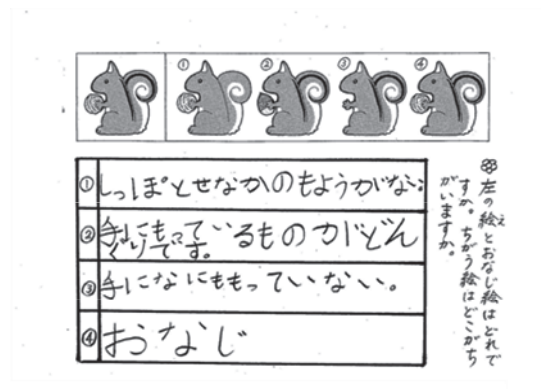 ① ② ③ ④
左の絵とおなじ絵はどれで
すか。ちがう絵はどこがち
がいますか。
え
① しっぽとせなかのもようがない。
② 手にもっているものがどん
ぐりです。
③ 手になにももっていない。
④ おなじ